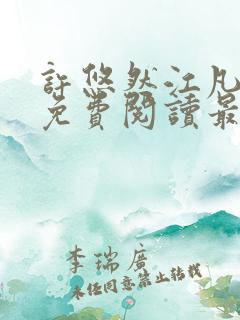 許悠然江凡
免費閱讀最
李瑞廣
未經同意禁止轉載